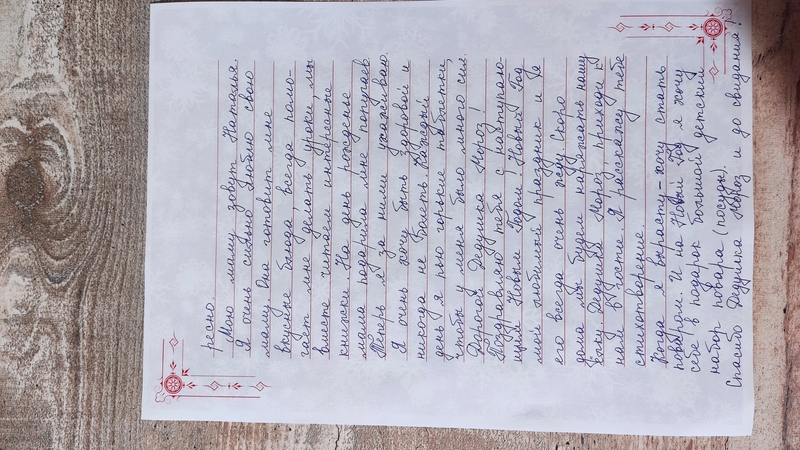 ресно.
Мою маму зовут Наталья.
Я очень сильно люблю свою
маму. Она готовит мне
вкусные блюда всегда помо-
гает мне делать уроки, мы
вместе читаем интересные
книжки. На день рожденье
мама подарила мне попугаев
Теперь я за ними ухаживаю.
Я очень хочу быть здоровой и
некогда не болеть. Каждый
день я пью горькие таблетки,
чтобы у меня было много сил.
Дорогой Дедушка Мороз!
Поздравляю тебя с наступаю-
щим Новым Годом! Новый Год
мой любимый праздник и я
его всегда очень жду. Скоро
дома мы будем наряжать нашу
ёлку. Дедушка Мороз, приходи к
нам в гости. Я расскажу тебе
стихотворение.
Когда я вырасту - хочу стать
поваром. И на Новый Год я хочу
себе в подарок большой детский
набор повара (посуды).
Спасибо Дедушка Мороз и до свидания!